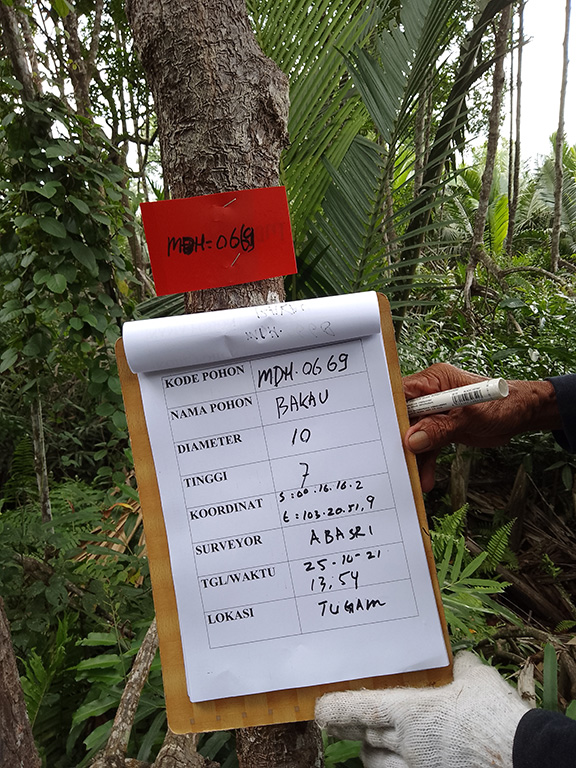 MDH-0669
KODE POHON MDH.0669
NAMA POHON BAKAU
DIAMETER 10
TINGGI 7
KOORDINAT S:00.16.16.2
E:103.20.51,9
SURVEYOR ABASRI
TGL/WAKTU 25-10-21
13:54
LOKASI TUGAM